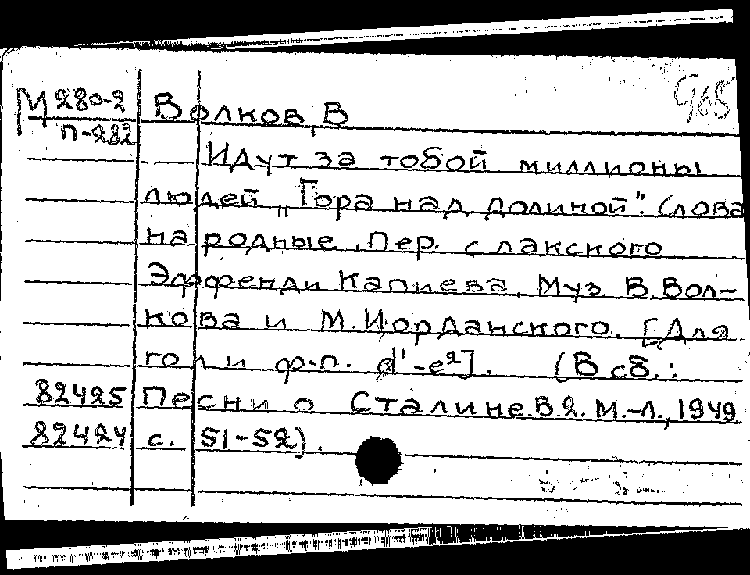 М 280-2 Волков, В 968
П-282
Идут за тобой миллионы
людей „Гора над долиной". Слова
народные. Пер. с лакского
Эффенди Капиева. Муз В. Вол-
кова и М. Иорданского. [Для
гол и ф-п. d'-e²]. (В сб.:
82425 Песни о Сталине. В 2. М.-Л., 1949
82424 с. 51-52).